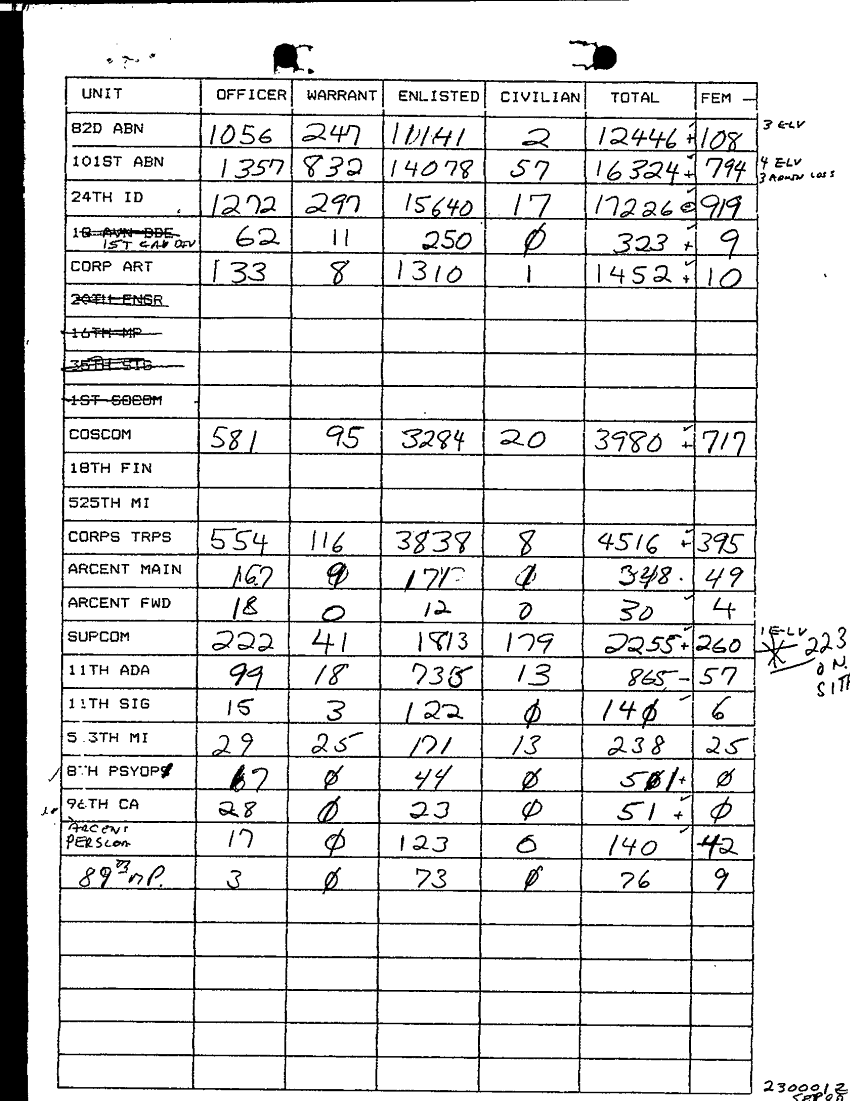 UNIT OFFICER WARRANT ENLISTED CIVILIAN TOTAL FEM —
82D ABN 1056 247 11141 2 12446 + 108 3 E-LV
101ST ABN 1357 832 14078 57 16324 + 794 4 E-LV
3 ADMIN LOSS
24TH ID 1272 297 15640 17 17226 919
18 AVN BDE
1ST CAV DIV 62 11 250 0 323 + 9
CORP ART 133 8 1310 1 1452 + 10
20TH ENGR
16TH MP
35TH SIG
1ST SOCOM
COSCOM 581 95 3284 20 3980 + 717
18TH FIN
525TH MI
CORPS TRPS 554 116 3838 8 4516 + 395
ARCENT MAIN 167 0 348 49
ARCENT FWD 18 0 12 0 30 4
SUPCOM 222 41 1813 179 2255 + 260 1 E-LV
223
ON
SITE
11TH ADA 99 18 735 13 865 - 57
11TH SIG 15 3 122 0 140 6
MI 29 25 171 13 238 25
8TH PSYOPS 0 44 0 + 0
96TH CA 28 0 23 0 51 + 0
ARCENT
PERSCOM 17 0 123 0 140 42
89TH MP. 3 0 73 0 76 9
230001Z
SEP 90